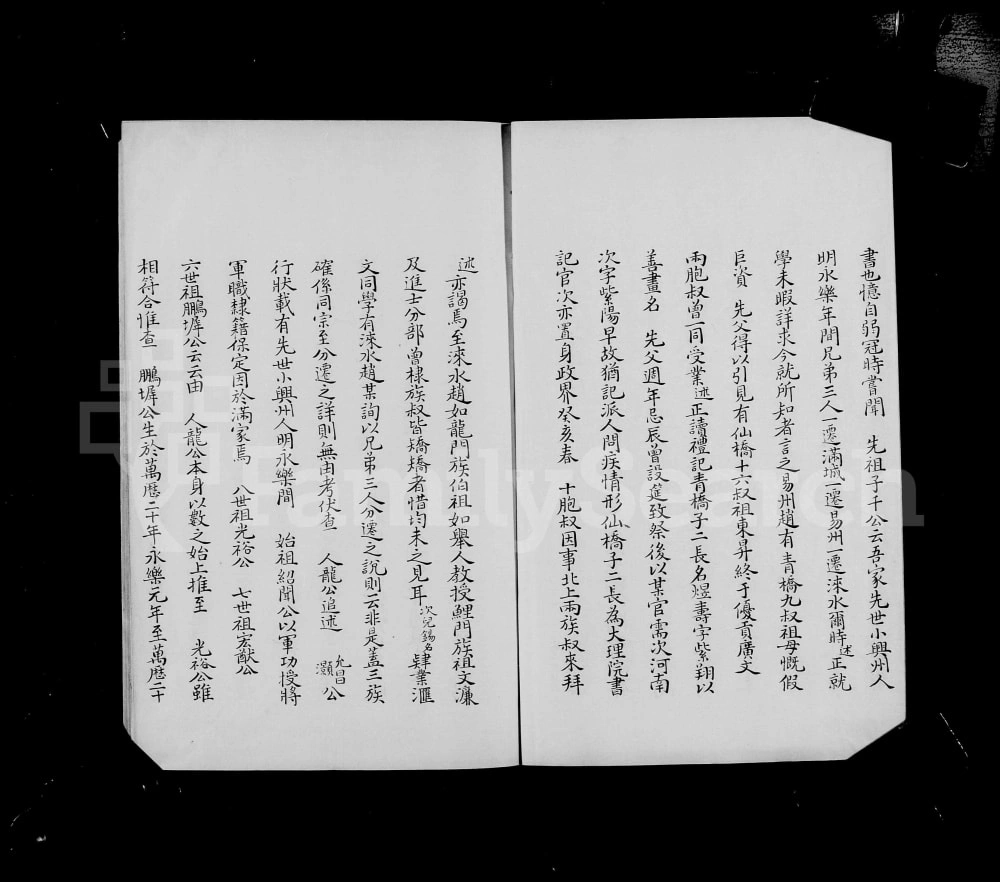 書也憶自弱冠時嘗聞　先祖子千公云吾家先世小興州人
明永樂年間兄弟三人一遷滿城一遷易州一遷淶水爾時述正就
學未暇詳求今就所知者言之易州趙有青橋九叔祖母慨假
巨資　先父得以引見有仙橋十六叔祖東昇終于優貢廣文
兩胞叔曾一同受業述正讀禮記青橋子二長名煜壽字紫翔以
善畫名　先父週年忌辰曾設筵致祭後以某官需次河南
次字紫陽早故猶記派人問疾情形仙橋子二長為大理院書
記官次亦置身政界癸亥春　十胞叔因事北上兩族叔來拜
述亦謁焉至淶水趙如龍門族伯祖如舉人教授鯉門族祖文濂
及進士分部曾棣族叔皆矯矯者惜均未之見耳次兒錫名肄業滙
文同學有淶水趙某詢以兄弟三人分遷之說則云非是蓋三族
確係同宗至分遷之詳則無由考伏查　人龍公追述　允昌灝公
行狀載有先世小興州人明永樂間　始祖紹聞公以軍功授將
軍職隸籍保定因於滿家焉　八世祖光裕公　七世祖宏猷公
六世祖鵬墀公云云由　人龍公本身以數之始上推至　光裕公雖
相符合惟查　鵬墀公生於萬曆二十年永樂元年至萬曆二十
FamilySearch